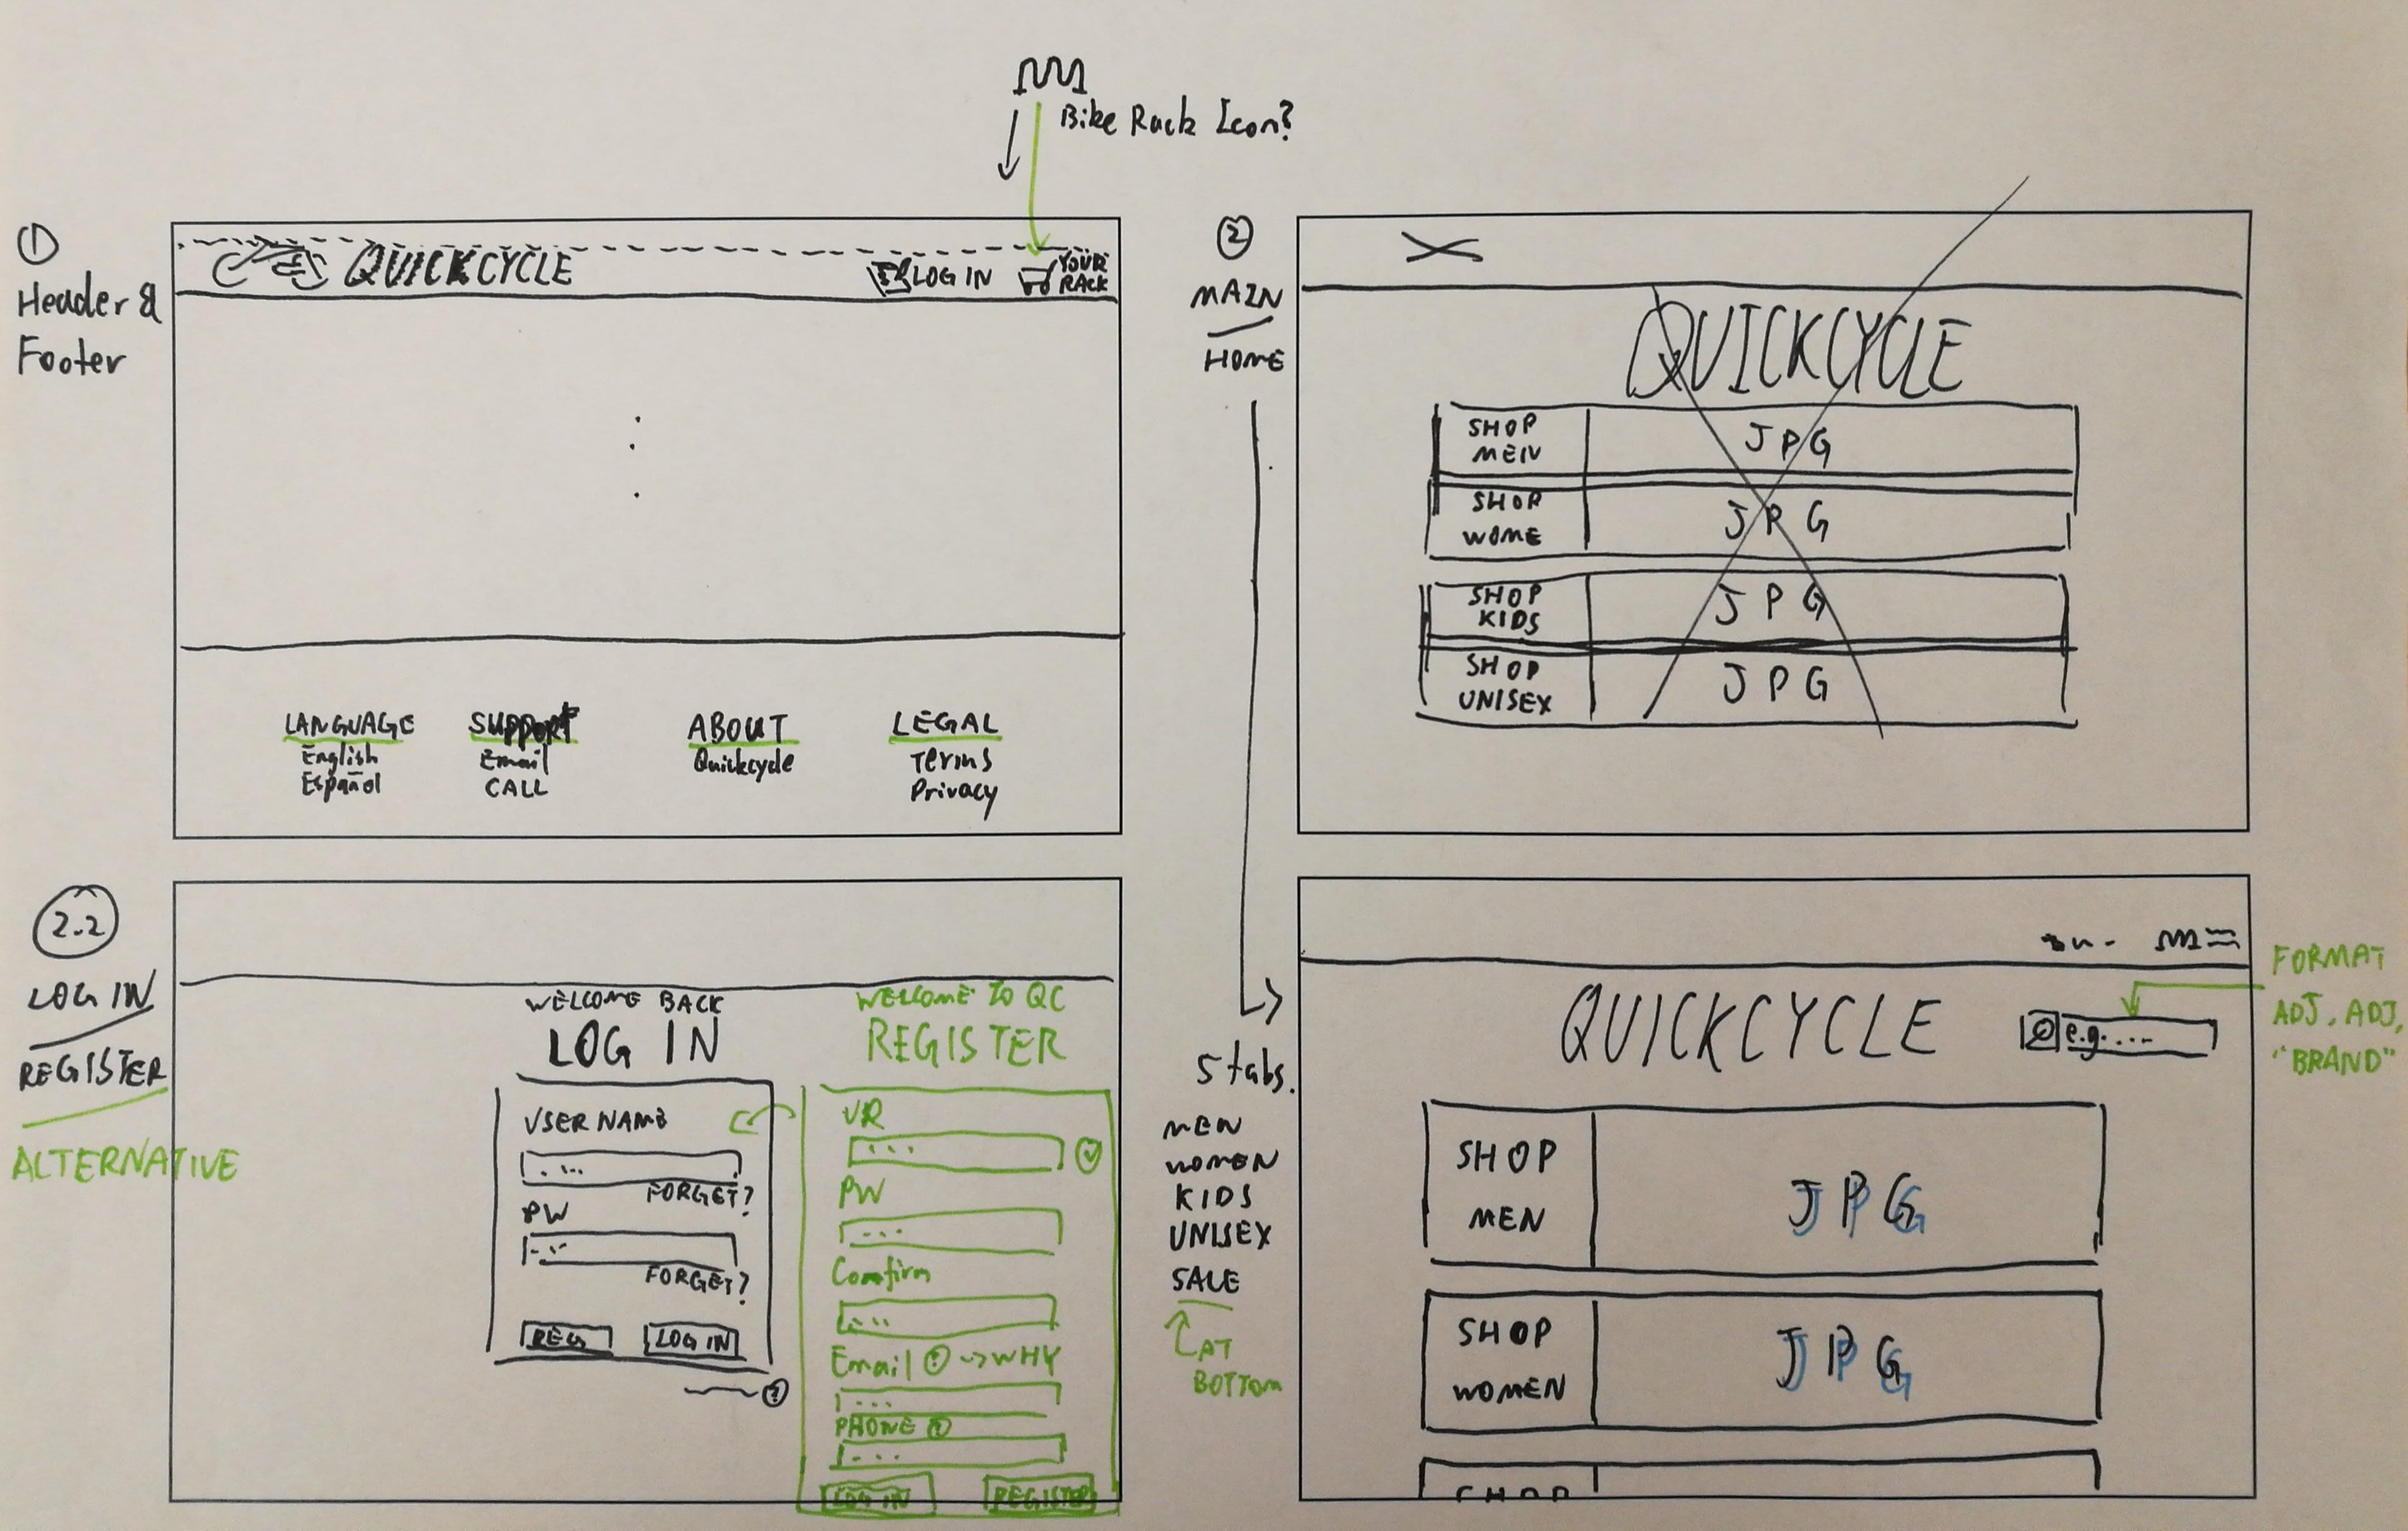 Bike Rack Icon?
①
Header &
Footer
QUICKCYCLE
LOG IN
YOUR
RACK
LANGUAGE
English
Español
SUPPORT
Email
CALL
ABOUT
Quickcycle
LEGAL
Terms
Privacy
②
MAIN
HOME
QUICKCYCLE
SHOP
MEN
JPG
SHOP
WOME
JPG
SHOP
KIDS
JPG
SHOP
UNISEX
JPG
2.2
LOG IN
REGISTER
ALTERNATIVE
WELCOME BACK
LOG IN
USERNAME
...
FORGET?
PW
...
FORGET?
REG
LOG IN
?
WELCOME TO QC
REGISTER
UR
...
PW
...
Comfirm
...
Email ? -> WHY
...
PHONE ?
...
LOG IN
REGISTER
5 tabs.
MEN
WOMEN
KIDS
UNISEX
SALE
AT
BOTTOM
QUICKCYCLE
e.g. ...
FORMAT
ADJ, ADJ,
"BRAND"
SHOP
MEN
JPG
SHOP
WOMEN
JPG
SHOP